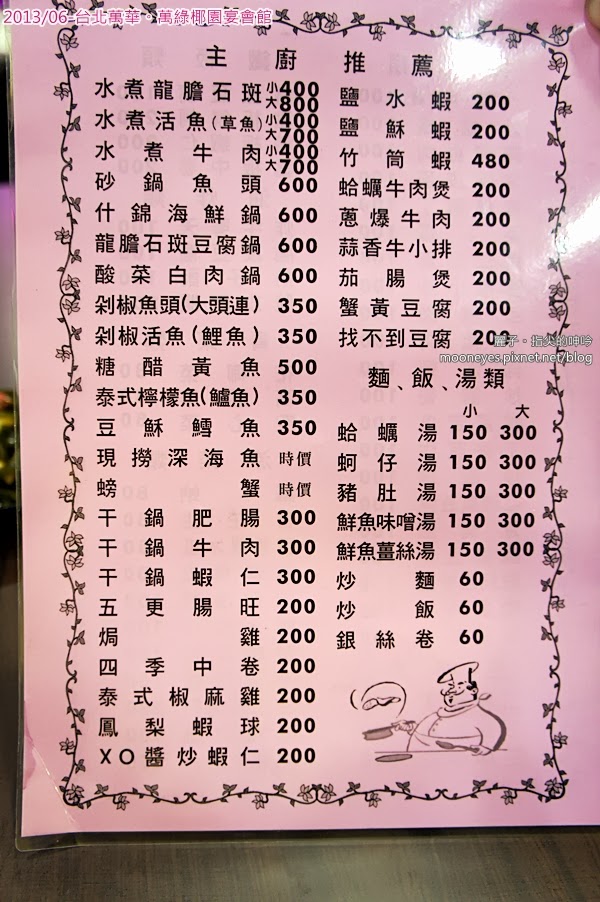 2013/06 台北萬華·萬綠椰園宴會館
主廚推薦
水煮龍膽石斑 小400 大800
水煮活魚(草魚) 小400 大700
水煮牛肉 小400 大700
砂鍋魚頭 600
什錦海鮮鍋 600
龍膽石斑豆腐鍋 600
酸菜白肉鍋 600
剁椒魚頭(大頭連) 350
剁椒活魚(鯉魚) 350
糖醋黃魚 500
泰式檸檬魚(鱸魚) 350
豆酥鱈魚 350
現撈深海魚 時價
螃蟹 時價
干鍋肥腸 300
干鍋牛肉 300
干鍋蝦仁 300
五更腸旺 200
焗雞 200
四季中卷 200
泰式椒麻雞 200
鳳梨蝦球 200
XO醬炒蝦仁 200
鹽水蝦 200
鹽酥蝦 200
竹筒蝦 480
蛤蠣牛肉煲 200
蔥爆牛肉 200
蒜香牛小排 200
茄腸煲 200
蟹黃豆腐 200
找不到豆腐 200
麗子·指尖的呻吟
mooneyes.pixnet.net/blog
麵、飯、湯類
小 大
蛤蠣湯 150 300
蚵仔湯 150 300
豬肚湯 150 300
鮮魚味噌湯 150 300
鮮魚薑絲湯 150 300
炒麵 60
炒飯 60
銀絲卷 60